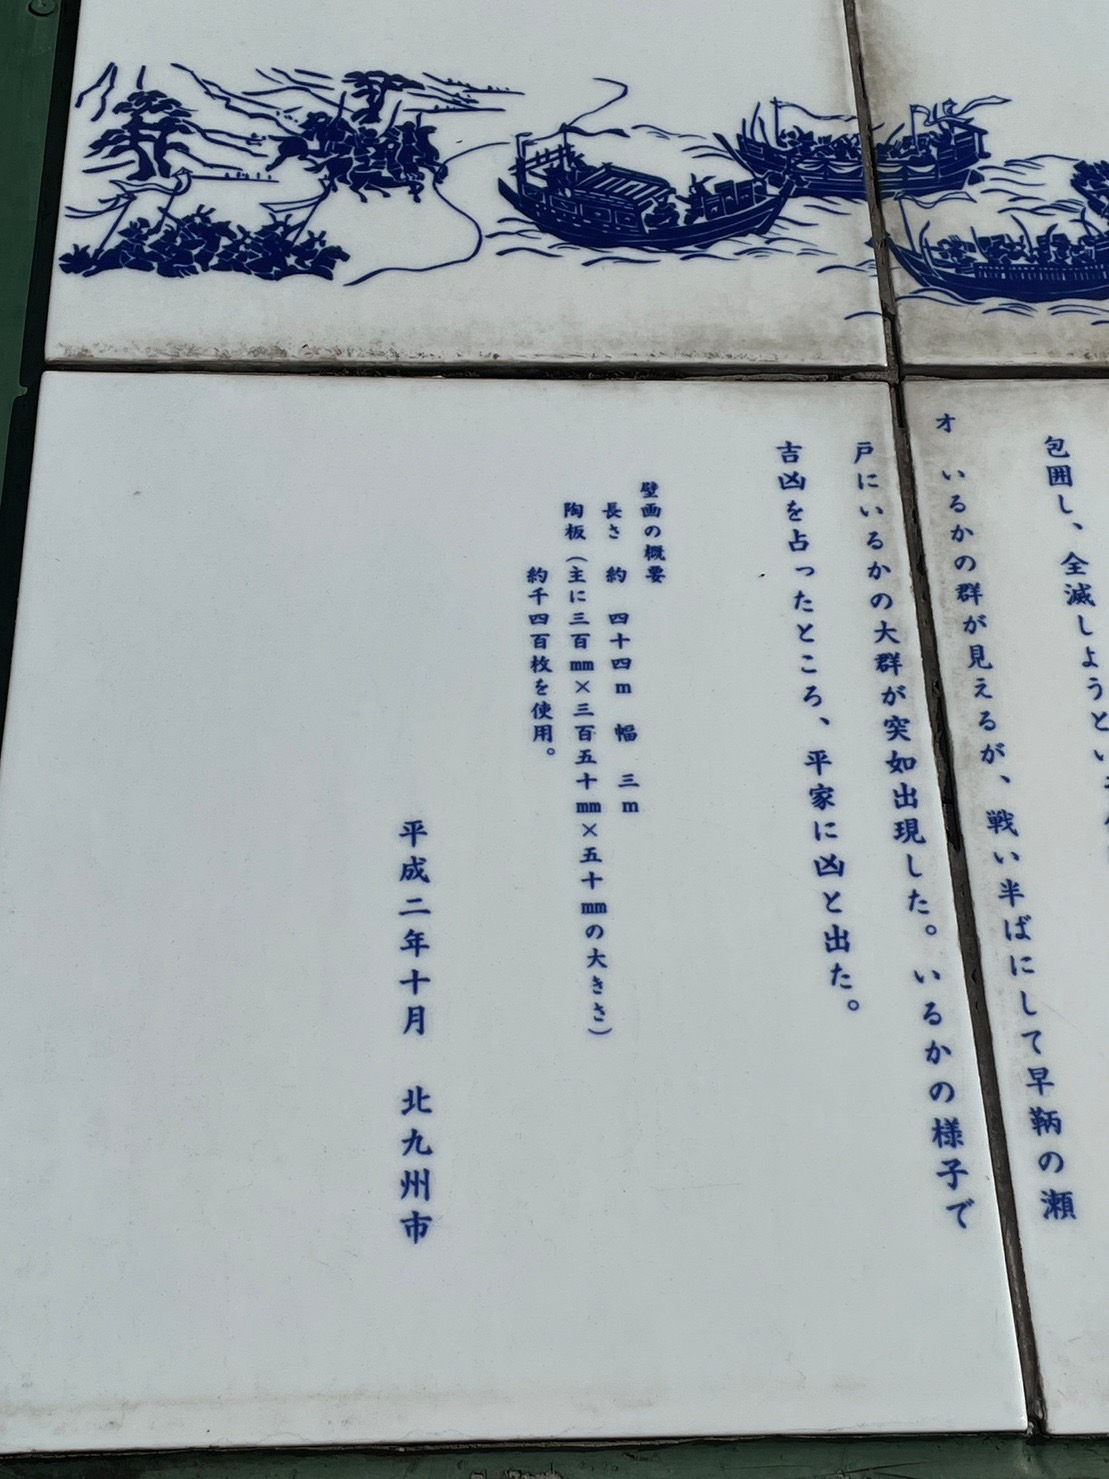 包囲し、全滅しようとい
オ いるかの群が見えるが、戦い半ばにして早鞆の瀬
戸にいるかの大群が突如出現した。いるかの様子で
吉凶を占ったところ、平家に凶と出た。
壁画の概要
長さ 約 四十四m 幅 三m
陶板（主に三百mm×三百五十mm×五十mmの大きさ）
約千四百枚を使用。
平成二年十月 北九州市